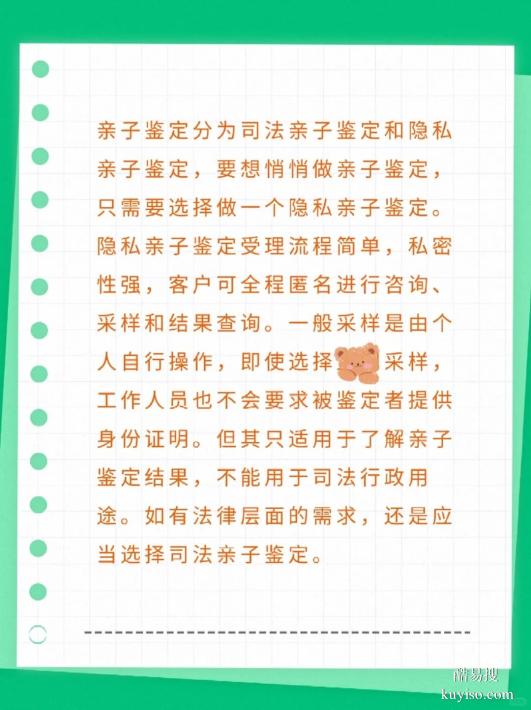 亲子鉴定分为司法亲子鉴定和隐私
亲子鉴定，要想悄悄做亲子鉴定，
只需要选择做一个隐私亲子鉴定。
隐私亲子鉴定受理流程简单，私密
性强，客户可全程匿名进行咨询、
采样和结果查询。一般采样是由个
人自行操作，即使选择采样，
工作人员也不会要求被鉴定者提供
身份证明。但其只适用于了解亲子
鉴定结果，不能用于司法行政用
途。如有法律层面的需求，还是应
当选择司法亲子鉴定。
酷易搜
kuyiso.com